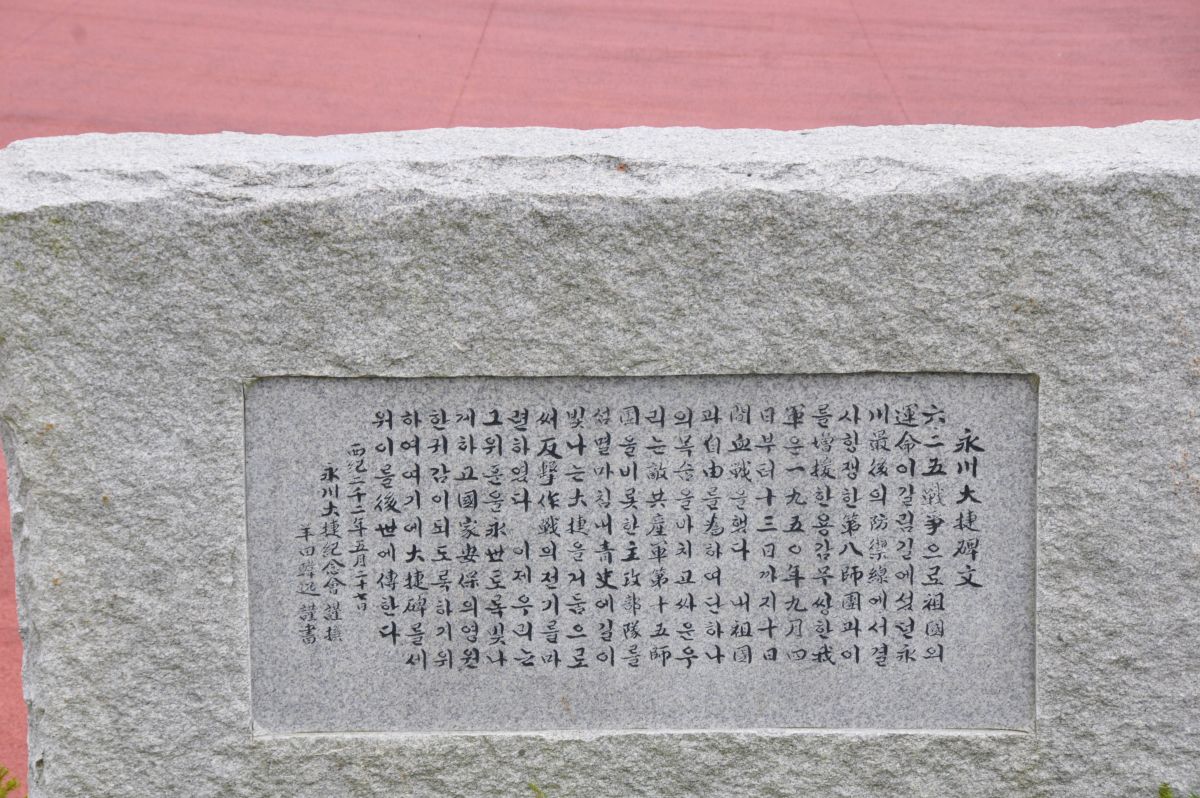 永川大捷碑文
六二五戰爭으로祖國의
運命이갈림길에섰던永
川最後의防禦線에서결
사항쟁한第八師團과이
를增援한용감무쌍한我
軍은一九五〇年九月四
日부터十三日까지十日
間血戰을했다 내祖國
과自由를為하여단하나
의목숨을마치고싸운우
리는敵共産軍第十五師
團을비롯한主攻部隊를
섬멸마침내靑史에길이
빛나는大捷을거둠으로
써反擊作戰의전기를마
련하였다 이제우리는
그위훈을永世토록빛나
게하고國家安保의영원
한귀감이되도록하기위
하여여기에大捷碑를세
워이를後世에傳한다
西紀二千二年五月二十七日
永川大捷紀念會 謹撰
羊田 謹書